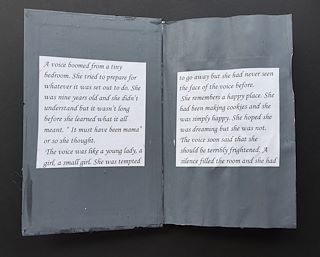 A voice boomed from a tiny
bedroom. She tried to prepare for
whatever it was set out to do. She
was nine years old and she didn't
understand but it wasn't long
before she learned what it all
meant. " It must have been mama"
or so she thought.
The voice was like a young lady, a
girl, a small girl. She was tempted
to go away but she had never seen
the face of the voice before.
She remembers a happy place. She
had been making cookies and she
was simply happy. She hoped she
was dreaming but she was not.
The voice soon said that she
should be terribly frightened. A
silence filled the room and she had